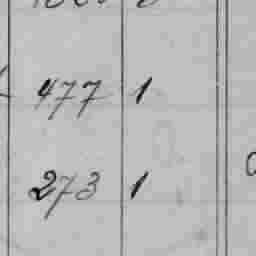 477 1
273 1